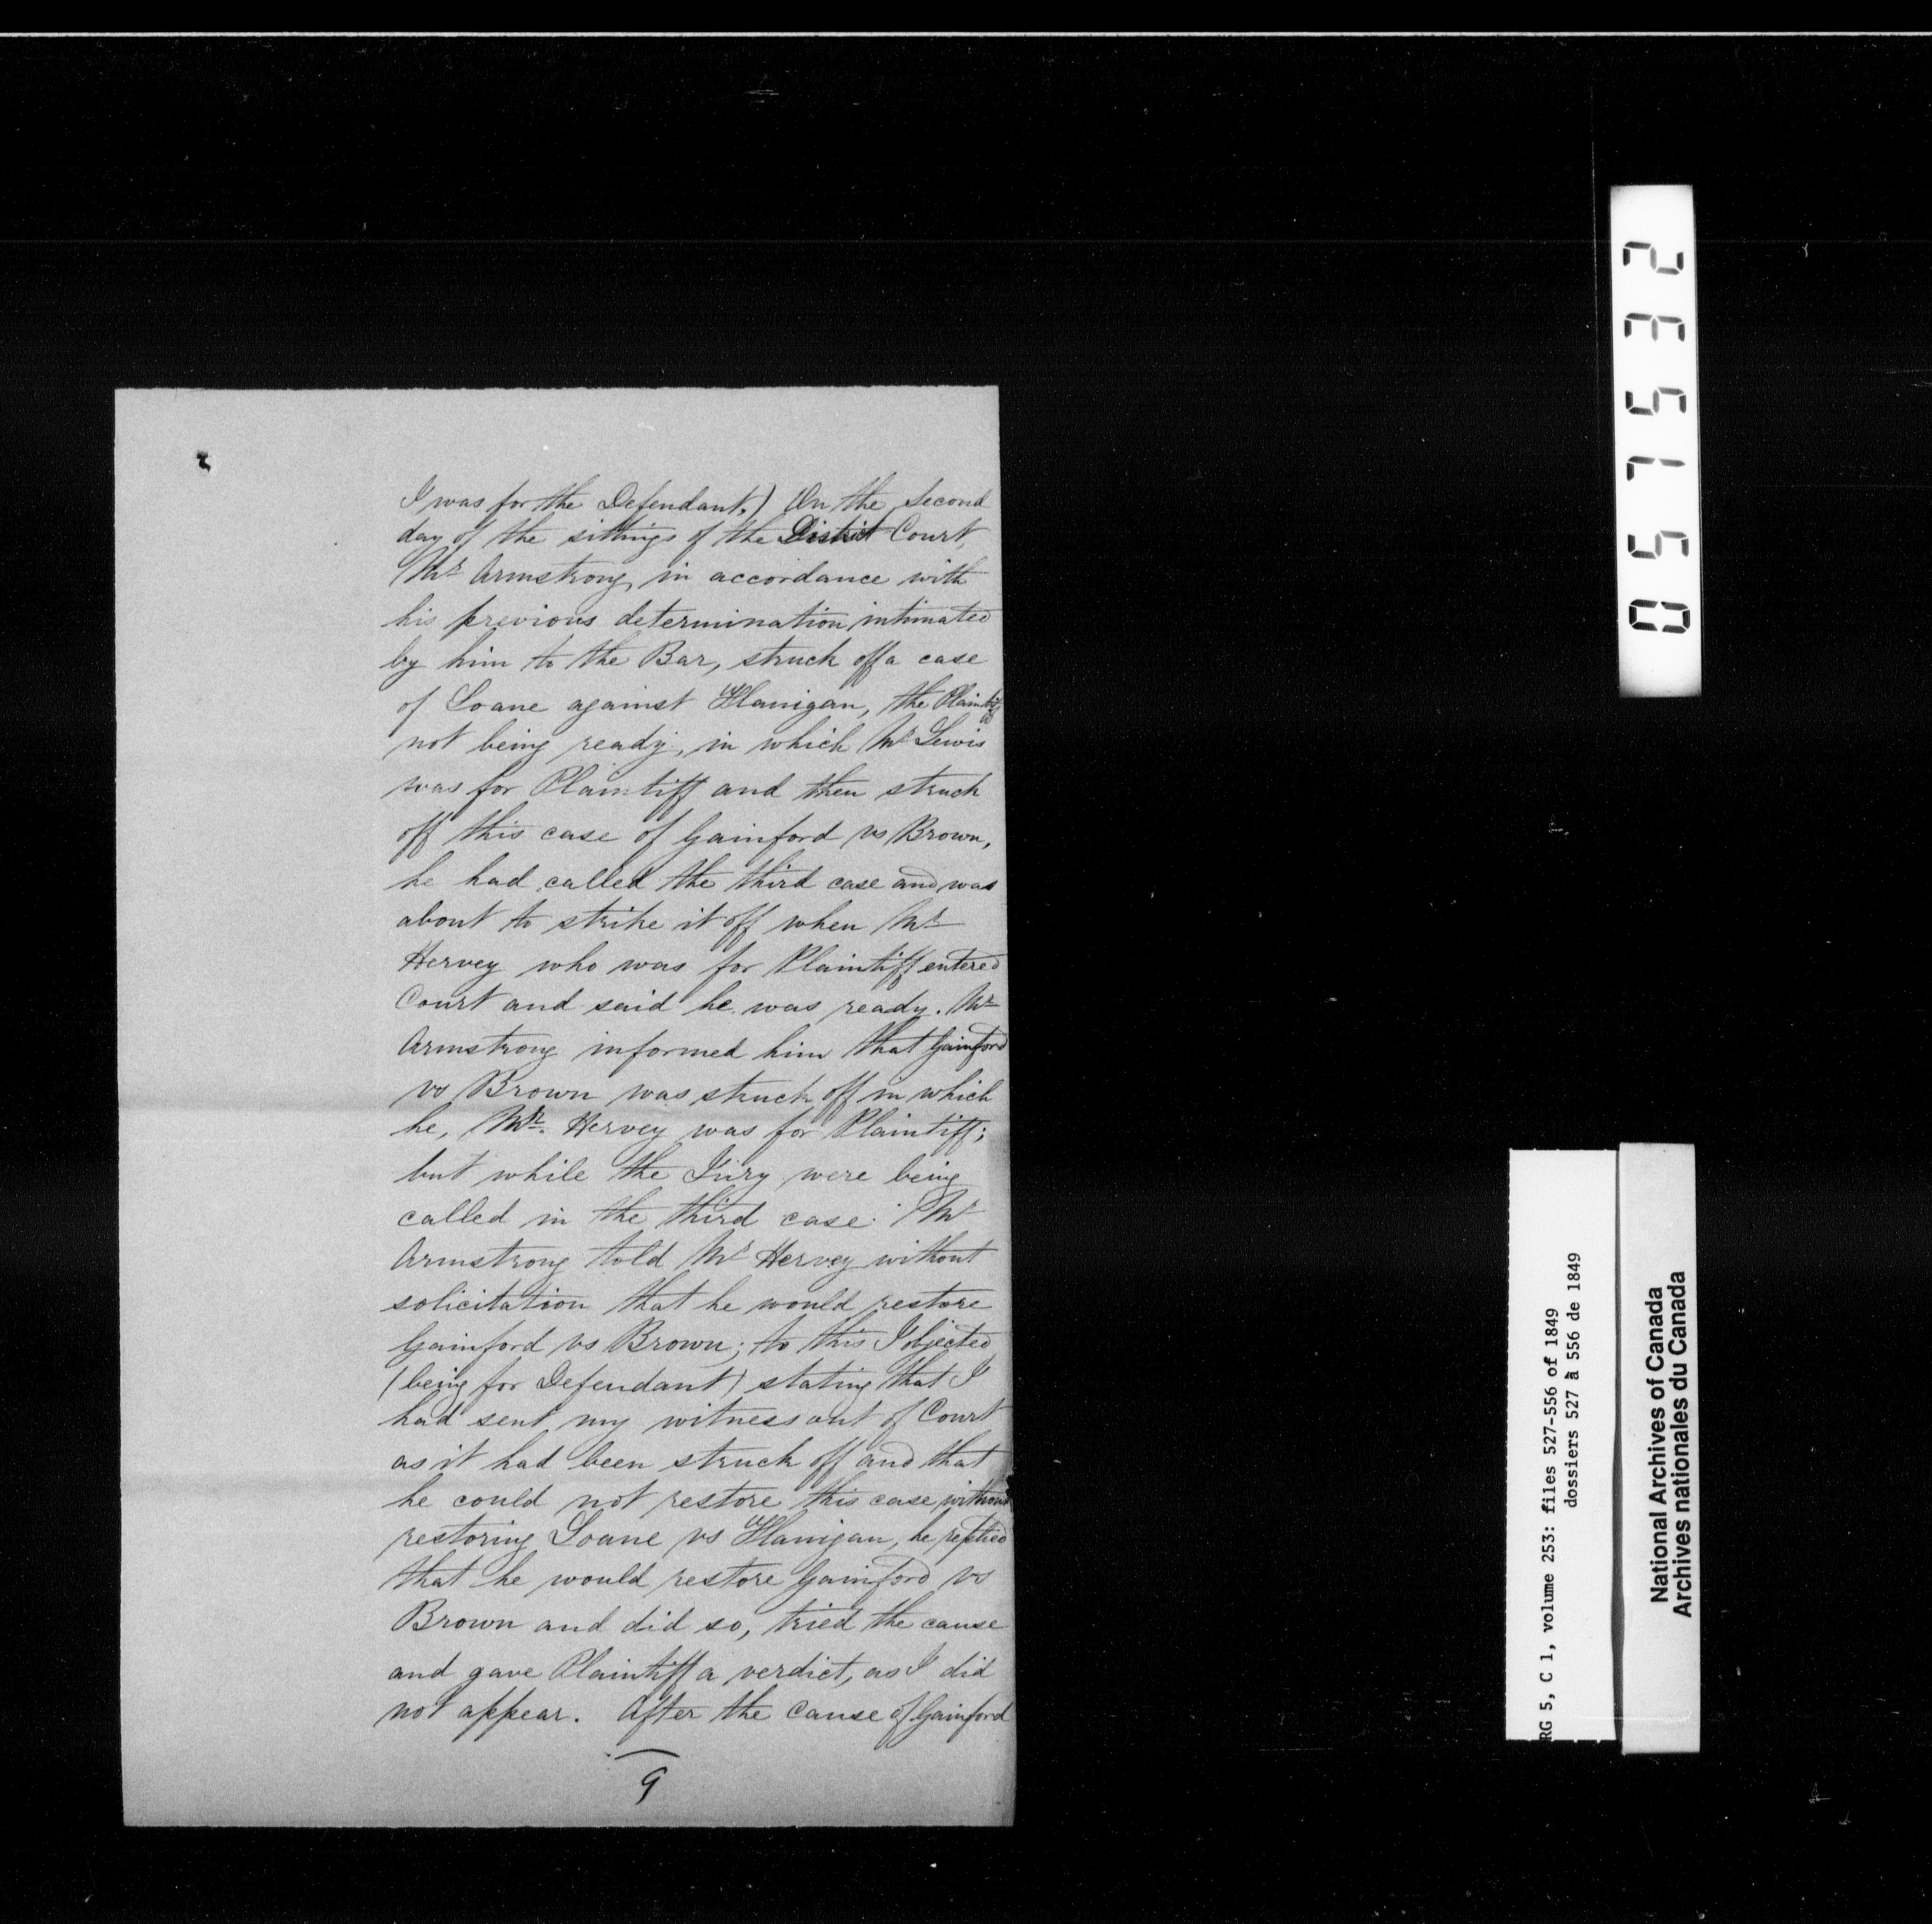 I was for the Defendant.) On the second
day of the sittings of the District Court,
Mr Armstrong, in accordance with
his previous determination intimated
by him to the Bar, struck off a case
of Loane against Flanigan, the Plaintiff
not being ready, in which Mr Lewis
was for Plaintiff and then struck
off this case of Gainford vs Brown,
he had called the third case and was
about to strike it off when Mr
Hervey who was for Plaintiff entered
Court and said he was ready. Mr
Armstrong informed him that Gainford
vs Brown was struck off in which
he, Mr. Hervey was for Plaintiff;
but while the Jury were being
called in the third case Mr
Armstrong told Mr Hervey without
solicitation that he would restore
Gainford vs Brown; to this I objected
(being for Defendant) stating that I
had sent my witness out of Court
as it had been struck off and that
he could not restore this case without
restoring Loane vs Flanigan, he replied
that he would restore Gainford vs
Brown and did so, tried the cause
and gave Plaintiff a verdict, as I did
not appear. After the cause of Gainford
9
057532
RG 5, C 1, volume 253: files 527-556 of 1849
dossiers 527 à 556 de 1849
National Archives of Canada
Archives nationales du Canada